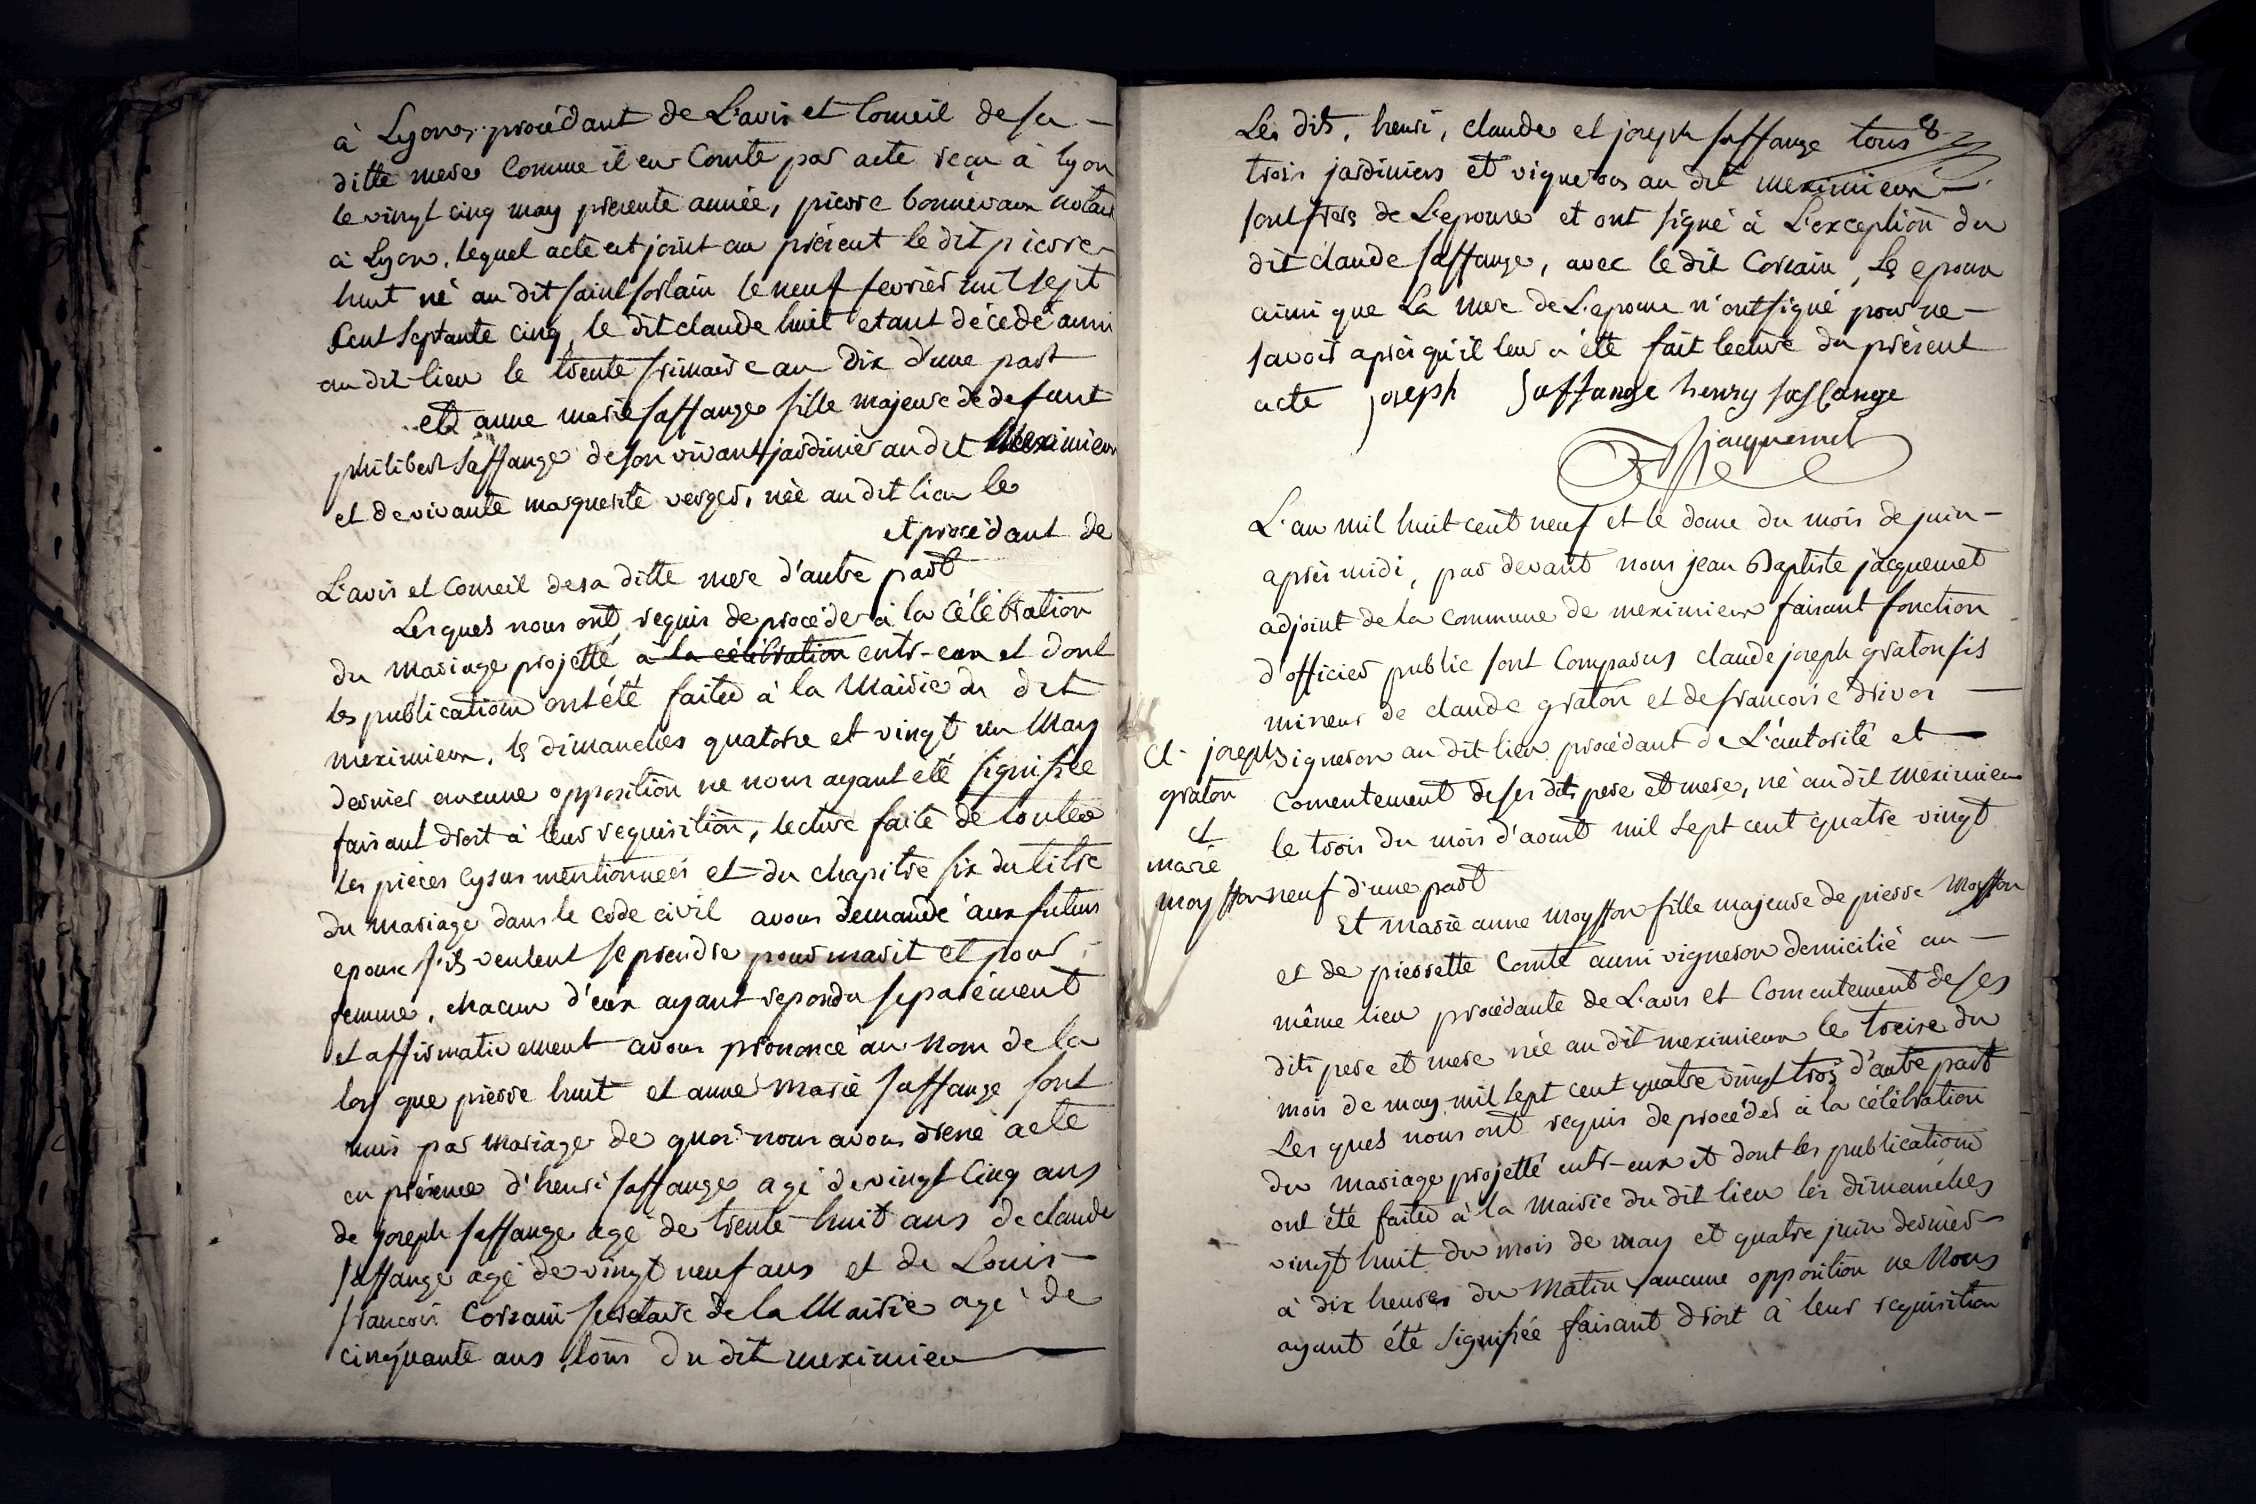 à Lyon, procédant de L'avis et Conseil de sa
ditte mere Comme il en Conte par acte reçu à lyon
le vingt cinq may presente année, pierre bonnevaux notaire
à Lyon, lequel acte est joint au présent le dit pierre
huit né au dit saint sorlain le neuf fevrier mil sept
Cent septante cinq, le dit claude huit etant décedé aussi
au dit lieu le trente frimaire an dix d'une part
et anne marie saffange fille majeure de defunt
philibert saffange de son vivant jardinier au dit Meximieux
et de vivante marguerite verger, née au dit lieu le
et procédant de
L'avis et Conseil de sa ditte mere d'autre part
Lesquels nous ont requis de procéder à la Célébration
du mariage projetté a la célébration entr-eux et dont
les publications ont été faites à la Mairie du dit
meximieux, les dimanches quatorze et vingt un May
dernier aucune opposition ne nous ayant été signifiée
faisant droit à leur requisition, lecture faite de toutes
les pieces cy sus mentionneés et du chapitre six du titre
du mariage dans le code civil avons demandé aux futurs
epoux s'ils veulent se prendre pour marit et pour
femme, chacun d'eux ayant repondu séparément
et affirmativement avons prononcé au nom de la
loy que pierre huit et anne marie saffange sont
unis par mariage de quoi nous avons dressé acte
en présence d'henri saffange agé de vingt Cinq ans
de joseph saffange agé de trente huit ans de claude
saffange agé de vingt neuf ans et de Louis
francois Corsain secretaire de la Mairie agé de
cinquante ans tous du dit meximieu
8
Les dits, henri, claude et joseph saffange tous
trois jardiniers et vignerons au dit meximieux
sont freres de L'epouse et ont signé à L'exception du
dit claude saffange, avec le dit Corsain, Les epoux
ainsi que La mere de L'epouse n'ont signé pour ne
savoir après qu'il leur a été fait lecture du présent
acte joseph Saffange henry saffange
jacquemet
L'an mil huit cent neuf et le douze du mois de juin
après midi, par devant nous jean Baptiste jacquemet
adjoint de la commune de meximieux faisant fonction
d'officier public sont Comparus claude joseph graton fils
mineur de claude graton et de francoise drivon
vigneron au dit lieu procédant de L'autorité et
Consentement de ses dits pere et mere, né au dit meximieu
le trois du mois d'aoust mil sept cent quatre vingt
neuf d'une part
Cl. joseph
graton
et
marie
moysson
Et marie anne moysson fille majeure de pierre Moysson
et de pierrette Comte aussi vigneron domicilié au
même lieu procédante de L'avis et Consentement de ses
dits pere et mere née au dit meximieux le treize du
mois de may mil sept cent quatre vingt trois d'autre part
Les quels nous ont requis de procéder à la célébration
du mariage projetté entr-eux et dont les publications
ont été faites à la mairie du dit lieu les dimanches
vingt huit du mois de may et quatre juin dernier
à dix heures du Matin, aucune opposition ne Nous
ayant été signifiée faisant droit à leur requisition